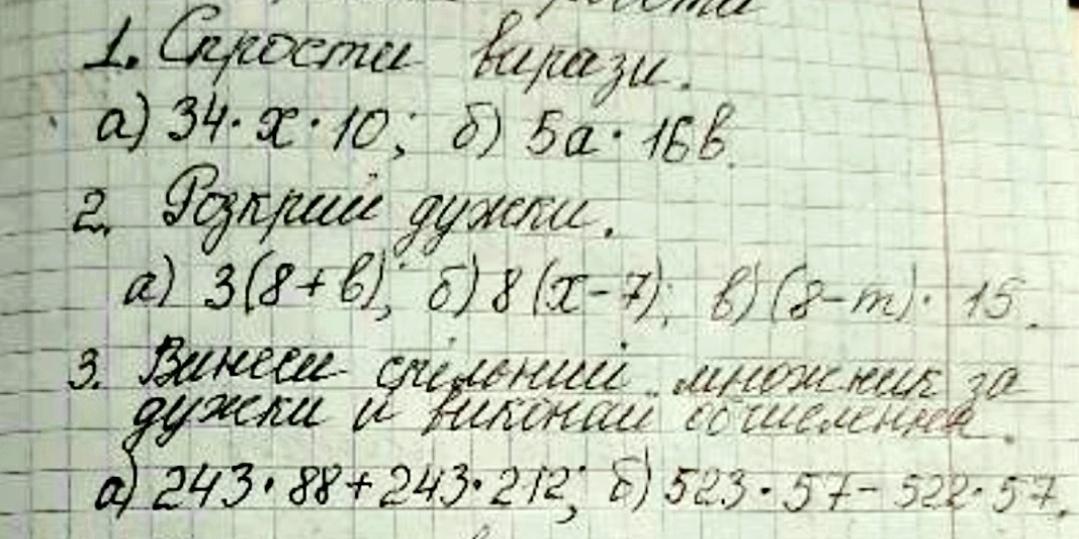 1. Спрости вирази.
а) 34·x·10; б) 5a·16b.
2. Розкрий дужки.
а) 3(8+b); б) 8(x-7); в) (8-m)·15.
3. Винеси спільний множник за
дужки й виконай обчислення.
а) 243·88+243·212; б) 523·57-522·57.